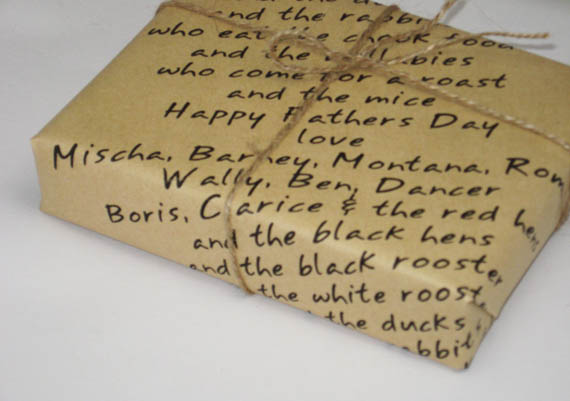 and the
who eat the chook food
and the
who come for a roast
and the mice
Happy Fathers Day
love
Mischa, Barney, Montana,
Wally, Ben, Dancer
Boris, Clarice & the red hens
and the black hens
and the black rooster
the white
the ducks